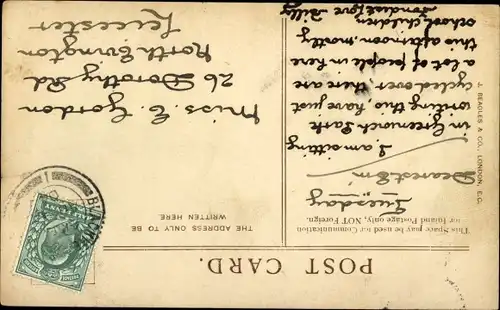 POST CARD.
This Space may be used for Communication
for Inland Postage only, NOT Foreign.
THE ADDRESS ONLY TO BE
WRITTEN HERE.
Tuesday
Dearest Em
I am sitting
in Greenwich Park
writing this, have just
cycled over, there are
a lot of people in here
this afternoon, mostly
school children
Fondest Love Billy
Miss. E. Gordon
26 Dorothy Rd.
North Evington
Leicester
J. BEAGLES & CO., LONDON, E.C.